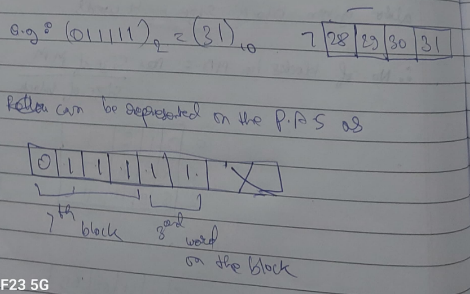 e.g: (011111)₂ = (31)₁₀ 7 28 29 30 31
can be represented on the P.A.S as
0 1 1 1 1 1
7th block 3rd word on the block
F23 5G